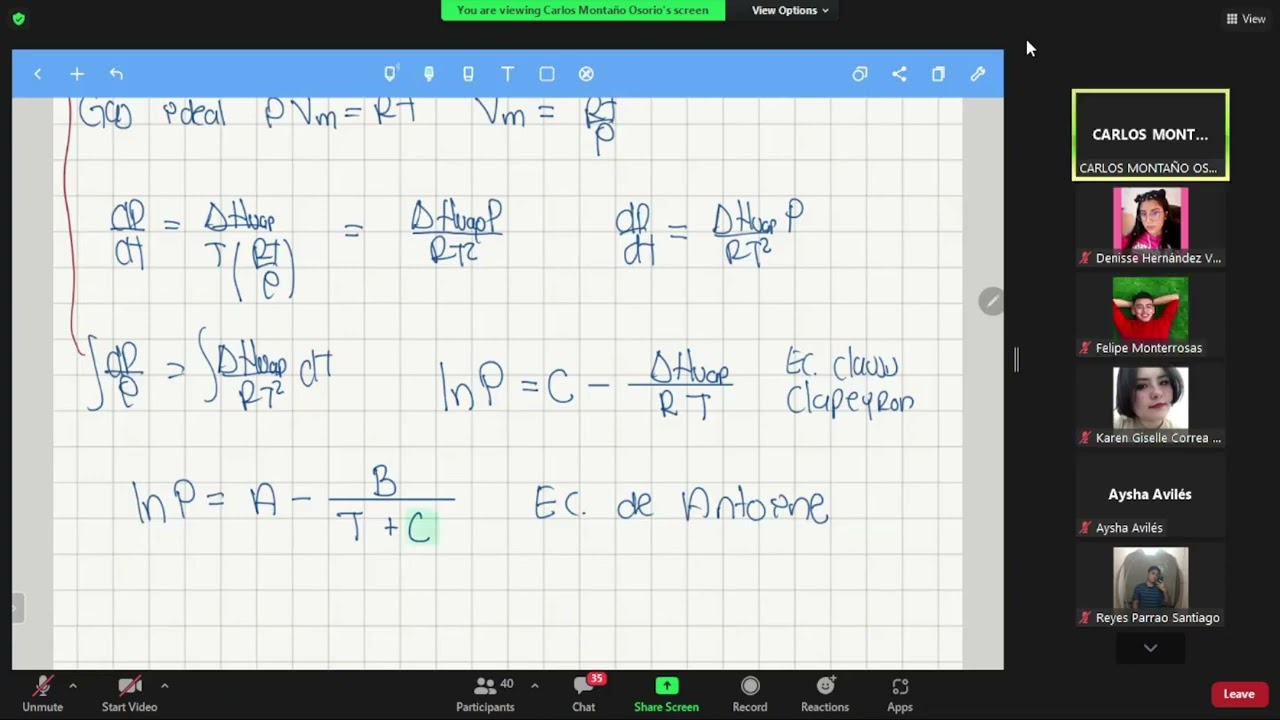 You are viewing Carlos Montaño Osorio's screen
View Options
View
Gas ideal PVm = RT Vm = RT/P
dP/dt = ΔHvap/T(RT/P) = ΔHvapP/RT² dP/dt = ΔHvap/RT² P
∫dP/P = ∫ΔHvap/RT² dt
ln P = C - ΔHvap/RT
Ec. Clauss
Clapeyron
ln P = A - B/T + C Ec. de Antoine
CARLOS MONT...
CARLOS MONTAÑO OS...
Denisse Hernández V...
Felipe Monterrosas
Karen Giselle Correa ...
Aysha Avilés
Aysha Avilés
Reyes Parrao Santiago
Unmute
Start Video
Participants
40
Chat
35
Share Screen
Record
Reactions
Apps
Leave